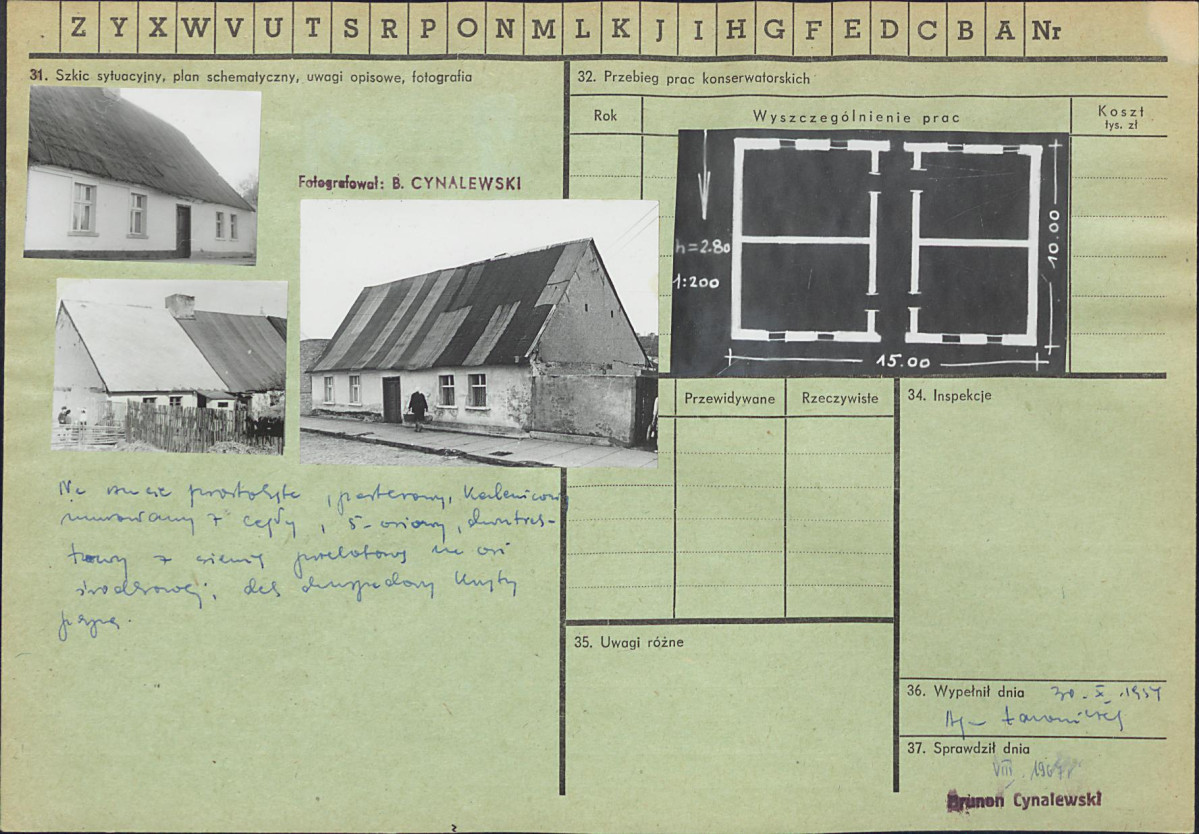 Z Y X W V U T S R P O N M L K J I H G F E D C B A Nr
31. Szkic sytuacyjny, plan schematyczny, uwagi opisowe, fotografia
Fotografował: B. CYNALEWSKI
Na rzucie prostokąta, parterowy, kalenicowy
murowany z cegły, 5-osiowy, dwutrak-
towy z sienią przelotową na osi
środkowej; dach dwuspadowy kryty
papą.
32. Przebieg prac konserwatorskich
Rok
Wyszczególnienie prac
Koszt
tys. zł
h=2.80
1:200
10.00
15.00
Przewidywane
Rzeczywiste
34. Inspekcje
35. Uwagi różne
36. Wypełnił dnia 30. X. 1959
37. Sprawdził dnia
VIII. 1967r
Brunon Cynalewski